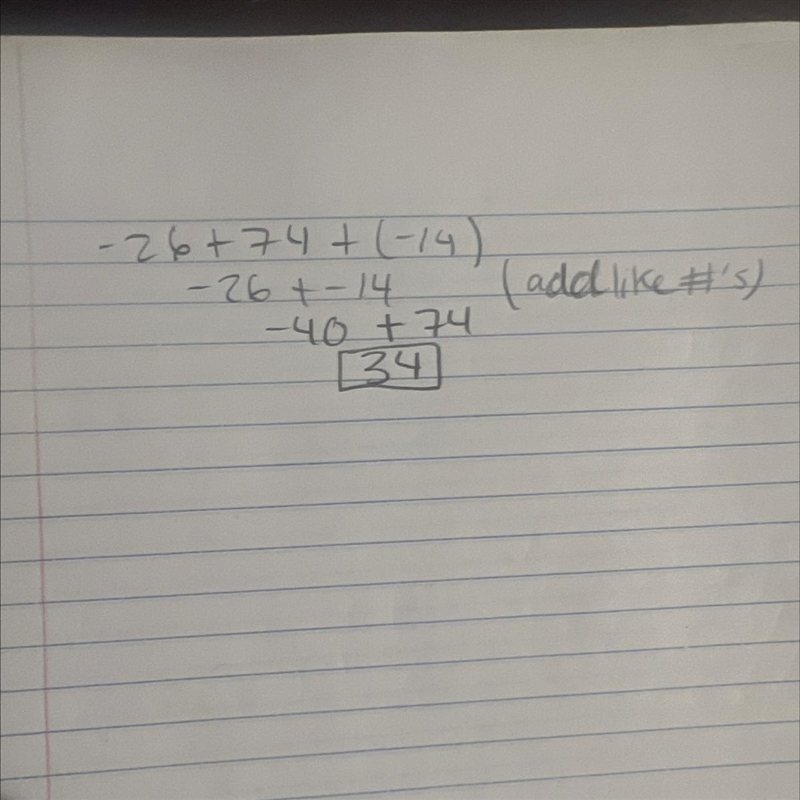 -26+74+(-14)
-26 + -14 (add like #'s)
-40 + 74
34